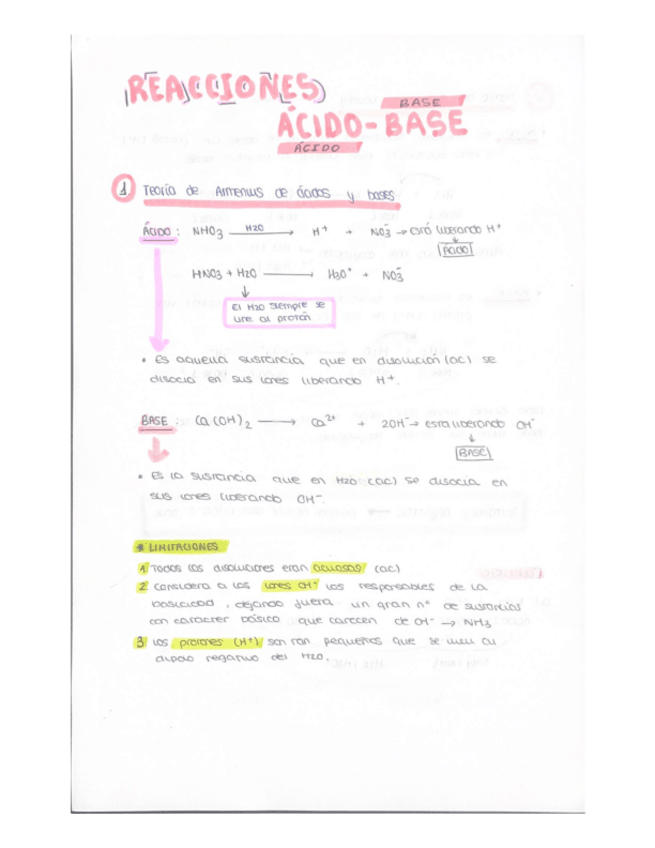 REACCIONES
BASE
ÁCIDO-BASE
ÁCIDO
1. Teoría de Arrhenius de ácidos y bases
ÁCIDO: NHO3 —H2O→ H+ + NO3- → está liberando H+
ÁCIDO
HNO3 + H2O → H3O+ + NO3-
El H2O siempre se
une al protón
• Es aquella sustancia que en disolución (ac) se
disocia en sus iones liberando H+.
BASE: Ca(OH)2 → Ca2+ + 2OH- → esta liberando OH-
BASE
• Es la sustancia que en H2O (ac) se disocia en
sus iones liberando OH-.
* LIMITACIONES
1 Todas las disoluciones eran acuosas (ac)
2 Considera a los iones OH- los responsables de la
basicidad, dejando fuera un gran nº de sustancias
con carácter básico que carecen de OH- → NH3
3 Los protones (H+) son tan pequeños que se unen al
dipolo negativo del H2O.